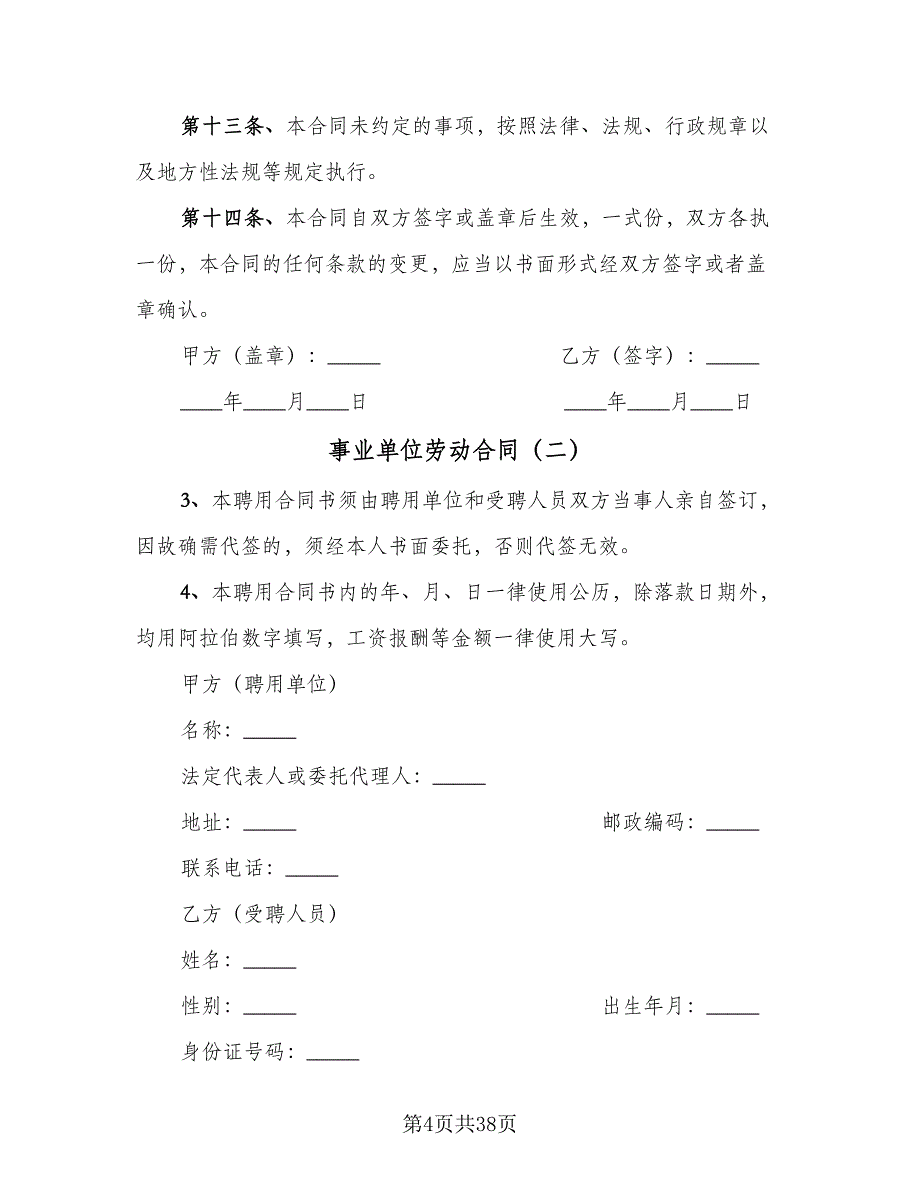 第十三条、本合同未约定的事项，按照法律、法规、行政规章以
及地方性法规等规定执行。
第十四条、本合同自双方签字或盖章后生效，一式份，双方各执
一份，本合同的任何条款的变更，应当以书面形式经双方签字或者盖
章确认。
甲方（盖章）：_____ 乙方（签字）：_____
____年____月____日 ____年____月____日
事业单位劳动合同（二）
3、本聘用合同书须由聘用单位和受聘人员双方当事人亲自签订，
因故确需代签的，须经本人书面委托，否则代签无效。
4、本聘用合同书内的年、月、日一律使用公历，除落款日期外，
均用阿拉伯数字填写，工资报酬等金额一律使用大写。
甲方（聘用单位）
名称：_____
法定代表人或委托代理人：_____
地址：_____ 邮政编码：_____
联系电话：_____
乙方（受聘人员）
姓名：_____
性别：_____ 出生年月：_____
身份证号码：_____
第4页共38页